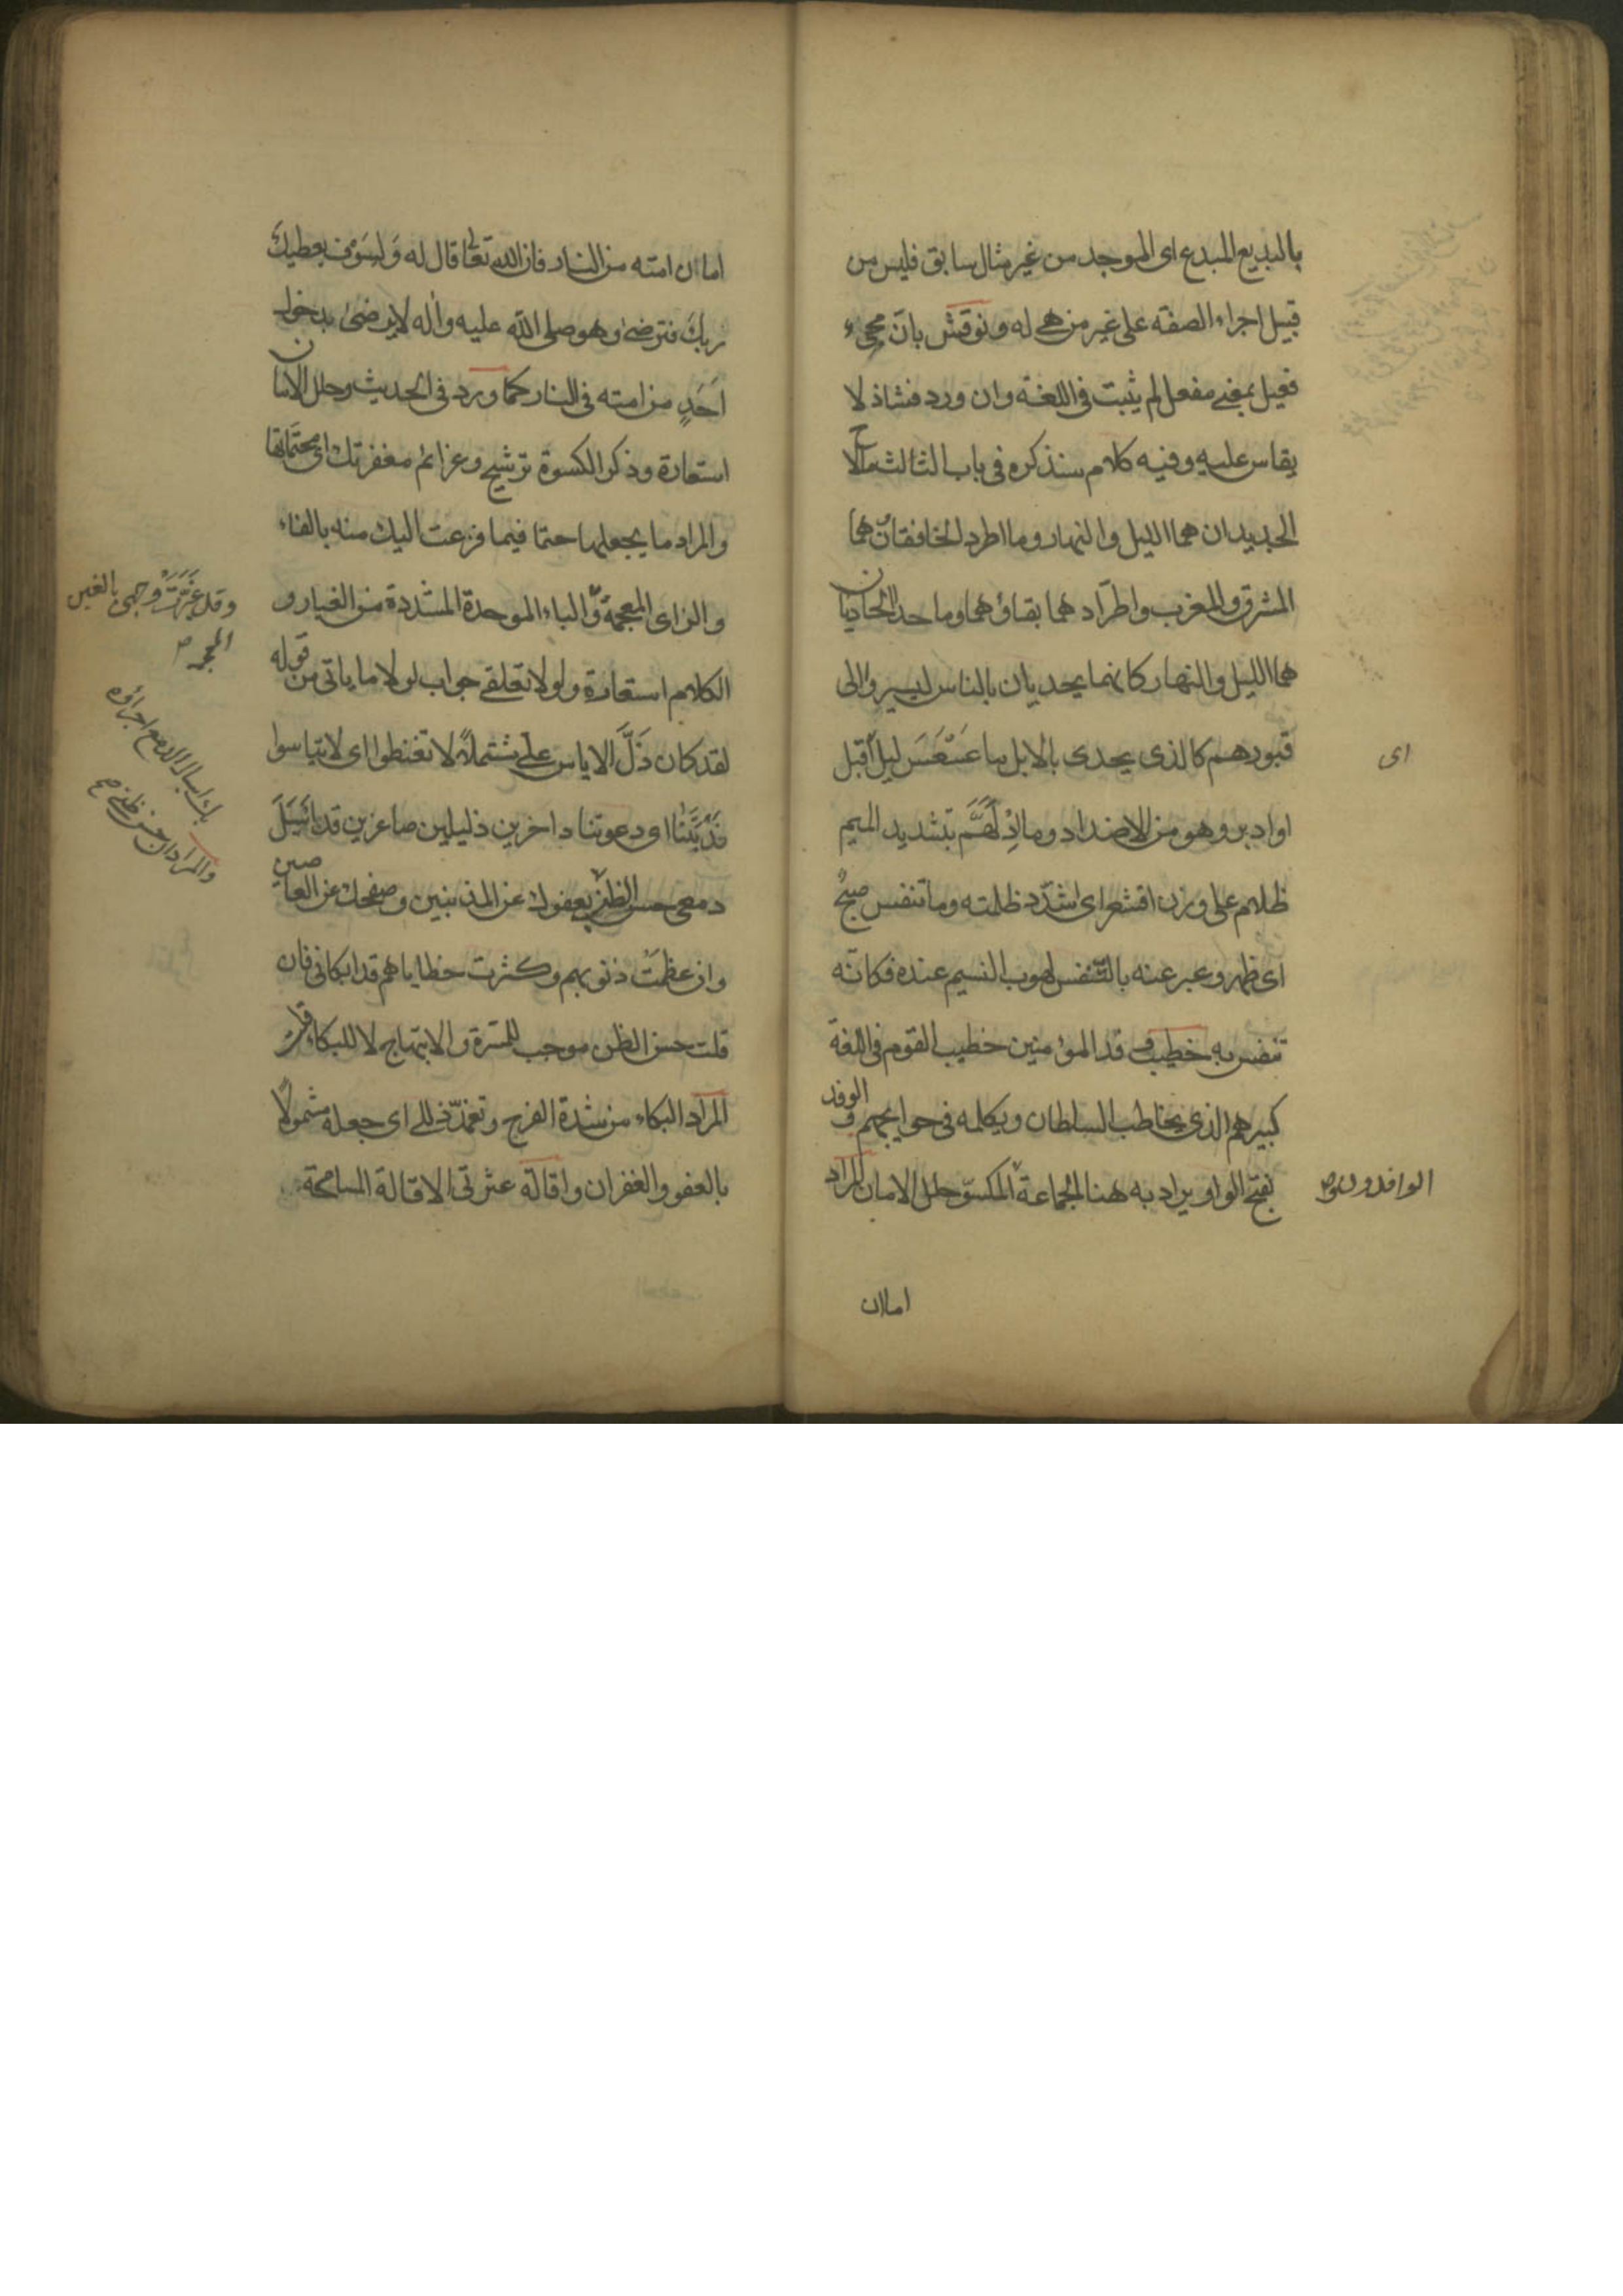 بالبديع المبدع اى الموجد من غير مثال سابق فليس من
قبيل اجراء الصفة على غير من هى له ونوقش بان مجىء
فعيل بمعنى مفعل لم يثبت فى اللغة وان ورد فشاذ لا
يقاس عليه وفيه كلام سنذكره فى باب الثالث ما لاح
الجديدان هما الليل والنهار وما اطرد الخافقان هما
المشرق والمغرب واطراد هما بقاؤهما وما حد الحاديان
هما الليل والنهار كانهما يحديان بالناس ليسيروا الى
قبورهم كالذى يحدى بالابل ما عَسْعَسَ ليل اقبل
اى
او ادبر وهو من الاضداد وما اذْلَهَمَّ بتشديد الميم
ظلام على وزن اقشعر اى اشتد ظلمته وما تنفس صبح
اى ظهر وعبر عنه بالتنفس لهبوب النسيم عنده فكانه
تنفس به خطيب وفد المؤمنين خطيب القوم فى اللغة
كبيرهم الذى يخاطب السلطان ويكلمه فى حوايجهم والوفد
بفتح الواو يراد به هنا الجماعة المكسو حلل الامان المراد
الوافدون
امان
امان امته من النار فان الله تعالى قال له وَلسَوف يعطيكَ
ربكَ فترضى وهو صلى الله عليه واله لا يرضى بدخول
اَحَدٍ من امته فى النار كما ورد فى الحديث وحلل الامان
استعارة وذكر الكسوة ترشيح وعزائم مغفرتك اى محتماتها
والمراد ما يجعلها حتما فيما فزعت اليك منه بالفاء
والزاى المعجمة والباء الموحدة المشددة من الغبار و
وقد غَبَّرَتْ وجهى بالغين
المعجمة
الكلام استعارة ولولا تعلقى جواب لولا ما ياتى من قوله
لقد كان ذَلَّ الاياس على مشتملا لا تقنطوا اى لا تياسوا
نَدَبْتَنا اى دعوتنا داخرين ذليلين صاغرين قد اَسْبَلَ
دمعى حسن الظن بعفوك عن المذنبين وصفحك عن العاصين
بك اسبال الدمع اجراؤه
والمراد ان حسن ظنى
وان عظمت ذنوبهم وكثرت خطاياهم قد ابكانى فان
قلت حسن الظن موجب للمسرة والابتهاج لا للبكاء قلت
المراد البكاء من شدة الفرح وتغمد زللى اى جعله مشمولا
بالعفو والغفران واقالة عثرتى الاقالة المسامحة